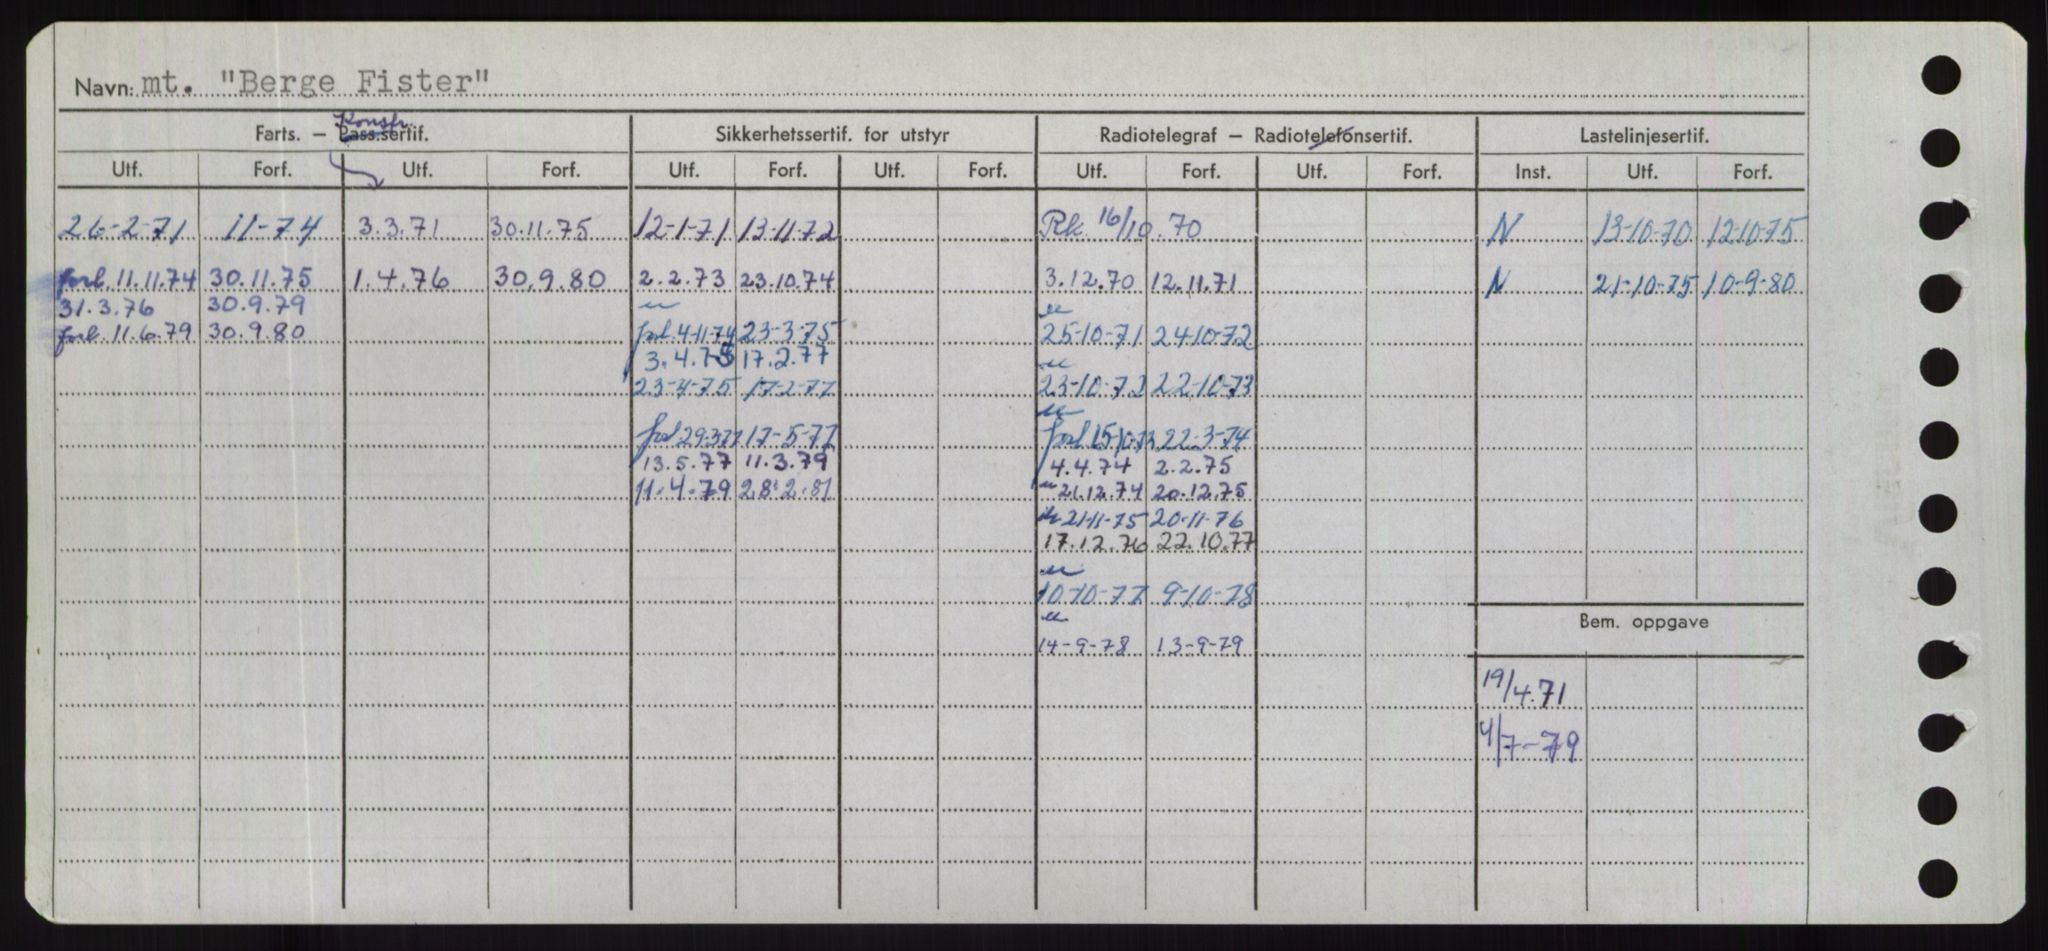 Navn: mt. "Berge Fister"
Konstr.
Farts. — Pass.sertif. Sikkerhetssertif. for utstyr Radiotelegraf — Radiotelefonsertif. Lastelinjesertif.
Utf. Forf. Utf. Forf. Utf. Forf. Utf. Forf. Utf. Forf. Utf. Forf. Inst. Utf. Forf.
26-2-71 11-74 3.3.71 30.11.75 12-1-71 13-11-72 Rk. 16/10.70 N 13-10-70 12-10-75
forl. 11.11.74 30.11.75 1.4.76 30.9.80 2.2.73 23.10.74 3.12.70 12.11.71 N 21-10-75 10-9-80
31.3.76 30.9.79
forl. 11.6.79 30.9.80 forl. 4-11-74 23-3-75 25-10-71 24-10-72
3.4.75 17.2.77
23-4-75 17-2-77 23-10-72 22-10-73
forl 29.3.77 17-5-77 forl 15-10-73 22-3-74
13.5.77 11.3.79 4.4.74 2.2.75
11.4.79 28.2.81 21.12.74 20.12.75
21-11-75 20-11-76
17.12.76 22.10.77
10-10-77 9-10-78
Bem. oppgave
14-9-78 13-9-79
19/4.71
4/7-79